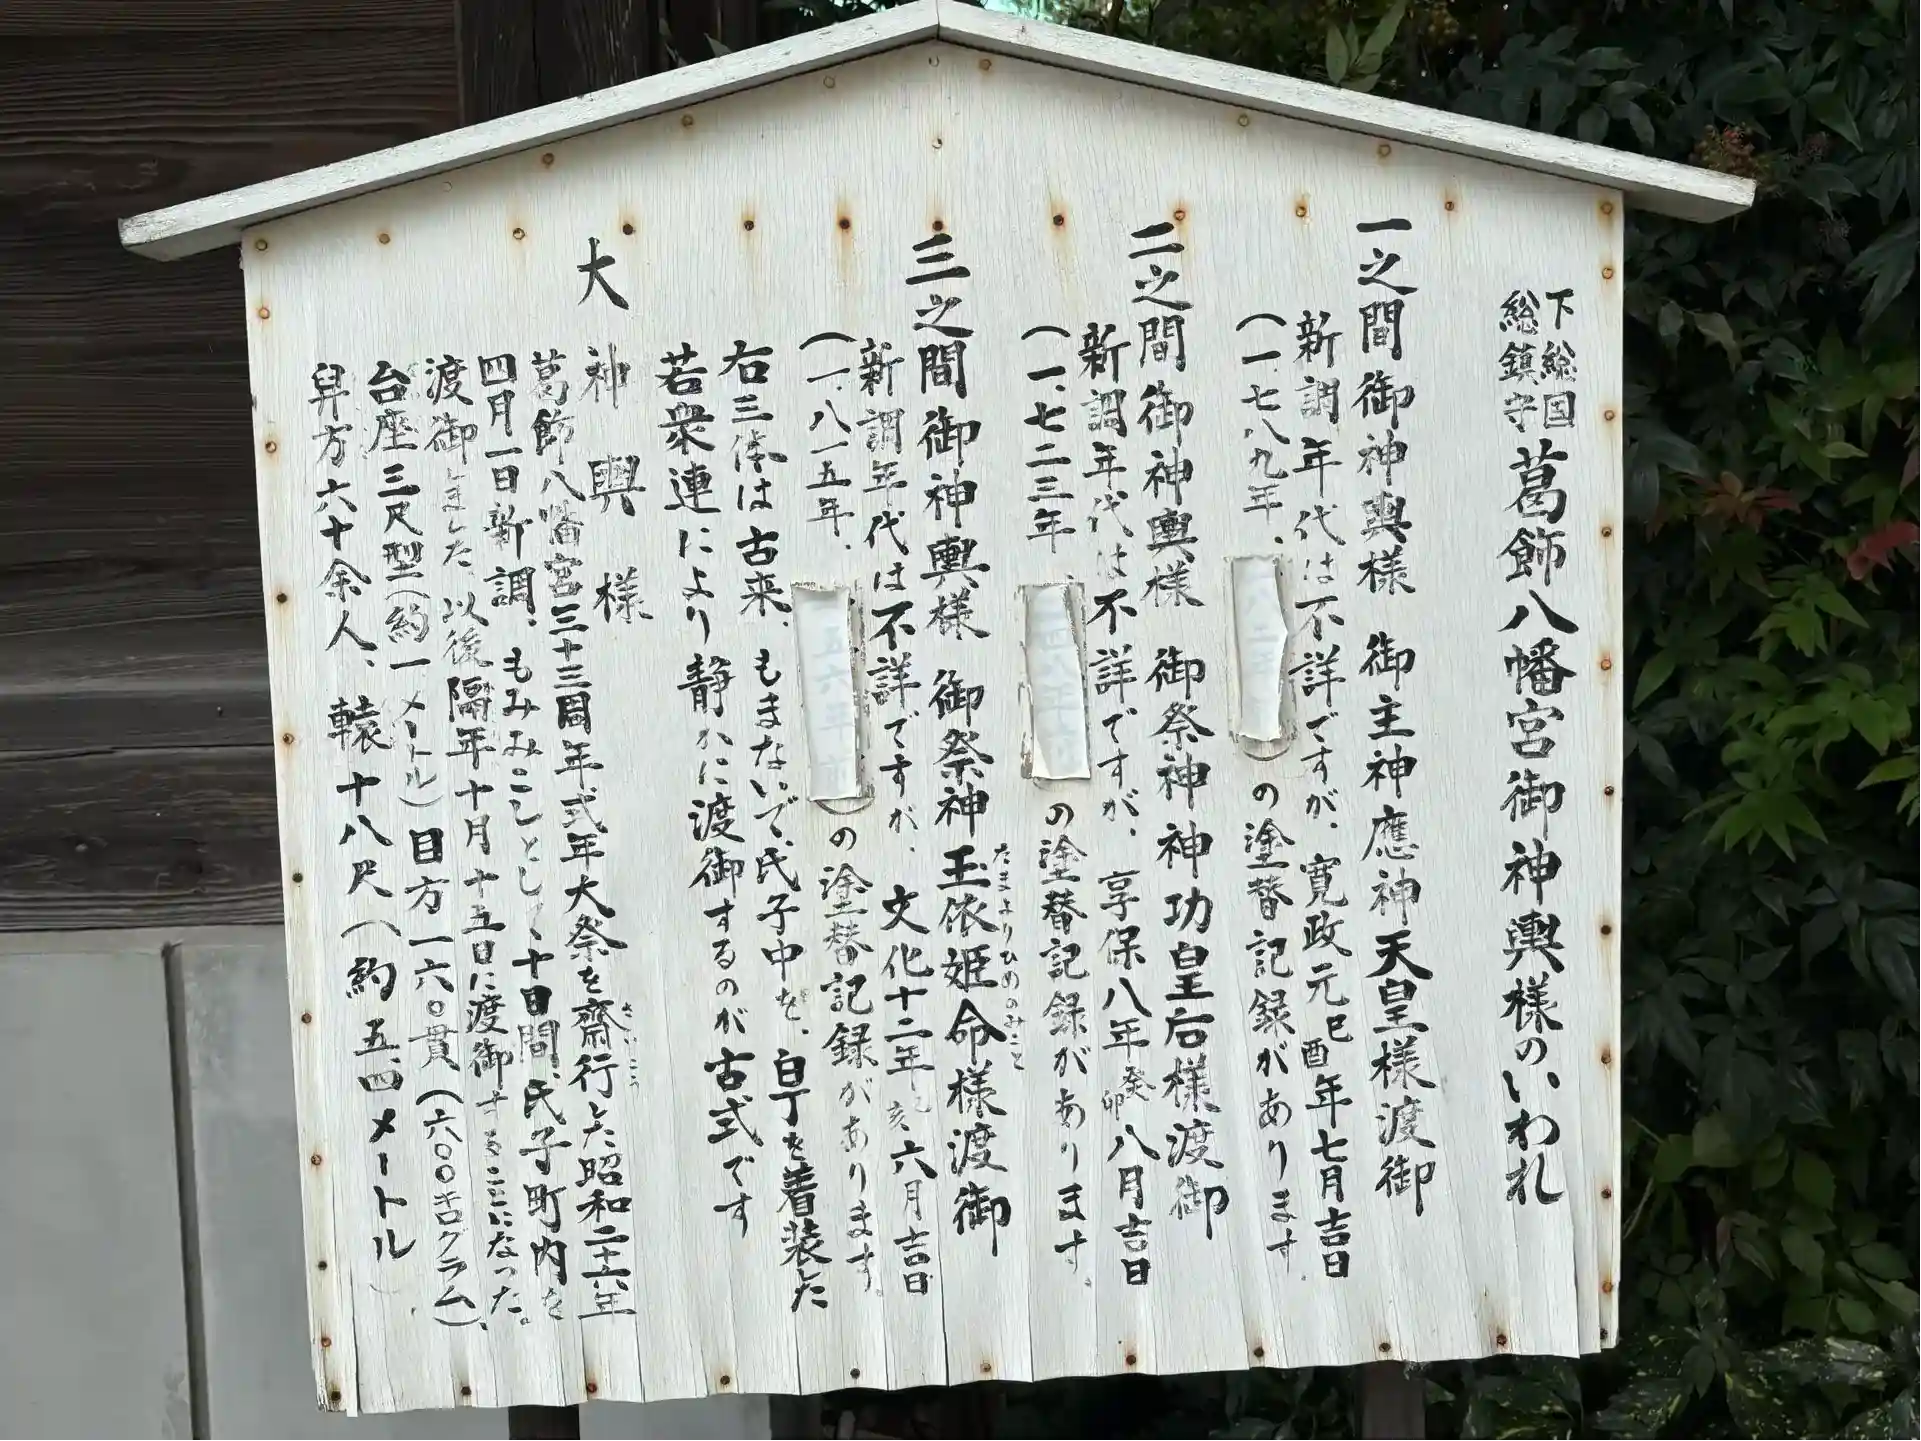 下総国
総鎮守
葛飾八幡宮御神輿様のいわれ
一之間御神輿様 御主神應神天皇様渡御
新調年代は不詳ですが、寛政元己酉年七月吉日
(一、七八九年、
の塗替記録があります。
二之間御神輿様 御祭神神功皇后様渡御
新調年代は不詳ですが、享保八年癸卯八月吉日
(一、七二三年、
の塗替記録があります。
三之間御神輿様 御祭神玉依姫命様渡御
たまよりひめのみこと
新調年代は不詳ですが、文化十二年 亥六月吉日
(一、八一五年、
五六年前
)の塗替記録があります。
右三体は古来、もまないで、氏子中を、白丁を着装した
若衆連により静かに渡御するのが古式です
大神輿様
葛飾八幡宮三十三周年式年大祭を齋行した昭和二十六年
さいこう
四月一日新調、もみみこしとして十日間、氏子町内を
渡御しました、以後隔年十月十五日に渡御することになった。
台座三尺型(約一メートル)目方一六〇貫(六〇〇キログラム)、
舁方六十余人、轅十八尺(約五、四メートル)、